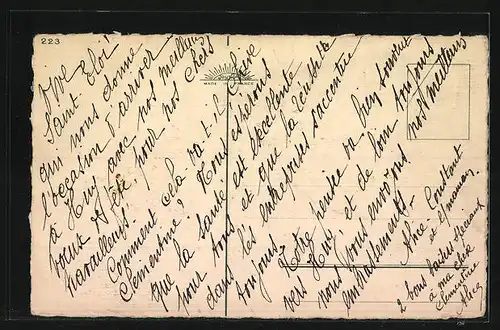 223
Vive
Saint Eloi!
qui nous donne
l'occasion d'arriver
à Huy avec nos meilleurs
voeux de fête pour nos chers
travailleurs.
Comment cela va t-il chère
Clémentine? Nous espérons
que la santé est excellente
pour tous et que la réussite
dans les entreprises s'accentue
toujours.
Notre pensée va bien souvent
vers Huy, et de loin toujours
nous vous envoyons nos meilleurs
embrassements.
Aline Constant
et maman.
2 bons baisers spéciaux
à ma chère
Clémentine
MADE